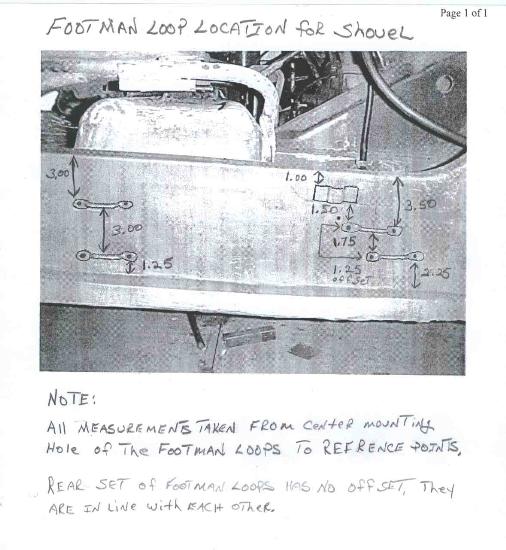 Page 1 of 1
FOOTMAN LOOP LOCATION for SHOVEL
3.00
1.00
3.50
1.50
3.00
1.75
1.25
1.25
offSET
2.25
NOTE:
All MEASUREMENTS TAKEN FROM CENTER MOUNTING
Hole of The FOOTMAN LOOPS TO REFRENCE POINTS,
REAR SET of FOOTMAN LOOPS HAS NO OffSET, They
ARE IN LINE with EACH OTHER.